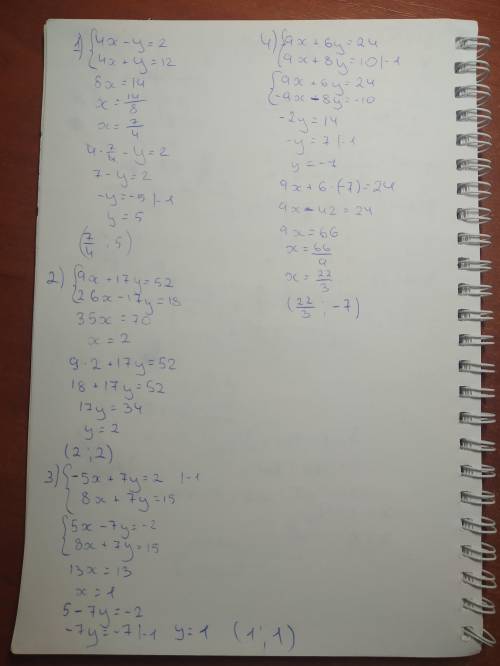 1) {4x - y = 2
4x + y = 12
8x = 14
x = 14/8
x = 7/4
4 · 7/4 - y = 2
7 - y = 2
-y = -5 |-1
y = 5
(7/4 ; 5)
2) {9x + 17y = 52
26x - 17y = 18
35x = 70
x = 2
9 · 2 + 17y = 52
18 + 17y = 52
17y = 34
y = 2
(2 ; 2)
3) {-5x + 7y = 2 |-1
8x + 7y = 15
{5x - 7y = -2
8x + 7y = 15
13x = 13
x = 1
5 - 7y = -2
-7y = -7 |-1 y = 1 (1 ; 1)
4) {9x + 6y = 24
9x + 8y = 10 |-1
{9x + 6y = 24
-9x - 8y = -10
-2y = 14
-y = 7 |-1
y = -7
9x + 6 · (-7) = 24
9x - 42 = 24
9x = 66
x = 66/9
x = 22/3
(22/3 ; -7)